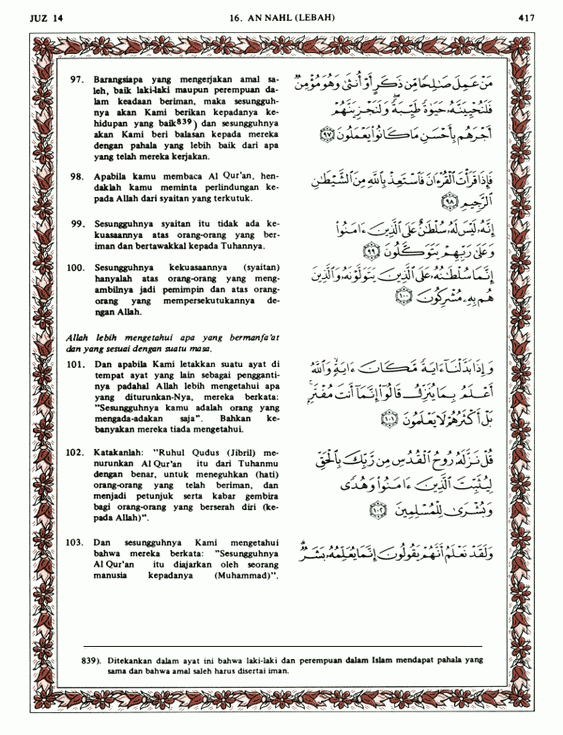 JUZ 14
16. AN NAHL (LEBAH)
417
97. Barangsiapa yang mengerjakan amal sa-
leh, baik laki-laki maupun perempuan da-
lam keadaan beriman, maka sesungguh-
nya akan Kami berikan kepadanya ke-
hidupan yang baik839) dan sesungguhnya
akan Kami beri balasan kepada mereka
dengan pahala yang lebih baik dari apa
yang telah mereka kerjakan.
مَنْ عَمِلَ صَٰلِحًا مِّن ذَكَرٍ أَوْ أُنثَىٰ وَهُوَ مُؤْمِنٌ
فَلَنُحْيِيَنَّهُۥ حَيَوٰةً طَيِّبَةً ۖ وَلَنَجْزِيَنَّهُمْ
أَجْرَهُم بِأَحْسَنِ مَا كَانُوا۟ يَعْمَلُونَ ٩٧
98. Apabila kamu membaca Al Qur'an, hen-
daklah kamu meminta perlindungan ke-
pada Allah dari syaitan yang terkutuk.
فَإِذَا قَرَأْتَ ٱلْقُرْءَانَ فَٱسْتَعِذْ بِٱللَّهِ مِنَ ٱلشَّيْطَٰنِ
ٱلرَّجِيمِ ٩٨
99. Sesungguhnya syaitan itu tidak ada ke-
kuasaannya atas orang-orang yang ber-
iman dan bertawakkal kepada Tuhannya.
إِنَّهُۥ لَيْسَ لَهُۥ سُلْطَٰنٌ عَلَى ٱلَّذِينَ ءَامَنُوا۟
وَعَلَىٰ رَبِّهِمْ يَتَوَكَّلُونَ ٩٩
100. Sesungguhnya kekuasaannya (syaitan)
hanyalah atas orang-orang yang meng-
ambilnya jadi pemimpin dan atas orang-
orang yang mempersekutukannya de-
ngan Allah.
إِنَّمَا سُلْطَٰنُهُۥ عَلَى ٱلَّذِينَ يَتَوَلَّوْنَهُۥ وَٱلَّذِينَ
هُم بِهِۦ مُشْرِكُونَ ١٠٠
Allah lebih mengetahui apa yang bermanfa'at
dan yang sesuai dengan suatu masa.
101. Dan apabila Kami letakkan suatu ayat di
tempat ayat yang lain sebagai pengganti-
nya padahal Allah lebih mengetahui apa
yang diturunkan-Nya, mereka berkata:
"Sesungguhnya kamu adalah orang yang
mengada-adakan saja". Bahkan ke-
banyakan mereka tiada mengetahui.
وَإِذَا بَدَّلْنَآ ءَايَةً مَّكَانَ ءَايَةٍ ۙ وَٱللَّهُ
أَعْلَمُ بِمَا يُنَزِّلُ قَالُوٓا۟ إِنَّمَآ أَنتَ مُفْتَرٍۭ ۚ
بَلْ أَكْثَرُهُمْ لَا يَعْلَمُونَ ١٠١
102. Katakanlah: "Ruhul Qudus (Jibril) me-
nurunkan Al Qur'an itu dari Tuhanmu
dengan benar, untuk meneguhkan (hati)
orang-orang yang telah beriman, dan
menjadi petunjuk serta kabar gembira
bagi orang-orang yang berserah diri (ke-
pada Allah)".
قُلْ نَزَّلَهُۥ رُوحُ ٱلْقُدُسِ مِن رَّبِّكَ بِٱلْحَقِّ
لِيُثَبِّتَ ٱلَّذِينَ ءَامَنُوا۟ وَهُدًى
وَبُشْرَىٰ لِلْمُسْلِمِينَ ١٠٢
103. Dan sesungguhnya Kami mengetahui
bahwa mereka berkata: "Sesungguhnya
Al Qur'an itu diajarkan oleh seorang
manusia kepadanya (Muhammad)".
وَلَقَدْ نَعْلَمُ أَنَّهُمْ يَقُولُونَ إِنَّمَا يُعَلِّمُهُۥ بَشَرٌ ۗ
839). Ditekankan dalam ayat ini bahwa laki-laki dan perempuan dalam Islam mendapat pahala yang
sama dan bahwa amal saleh harus disertai iman.